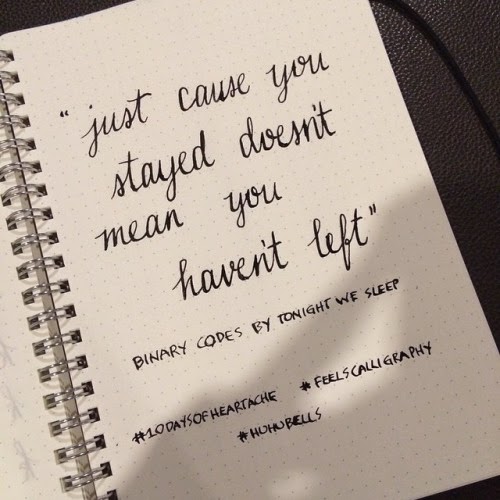 "just cause you
stayed doesn't
mean you
haven't left"
BINARY CODES BY TONIGHT WE SLEEP
#10DAYSOFHEARTACHE #FEELSCALLIGRAPHY
#HUHUBELLS